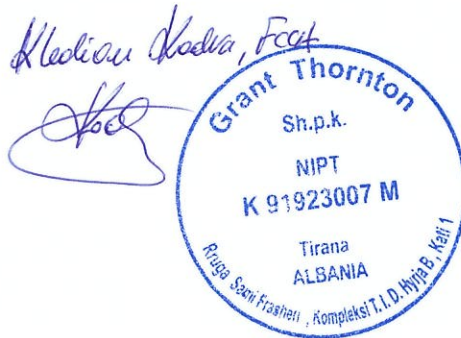 Kledian Kodra, FCCA
Grant Thornton
Sh.p.k.
NIPT
K 91923007 M
Tirana
ALBANIA
Rruga Sami Frasheri , Kompleksi T.I.D. Hyrja B , Kati 1